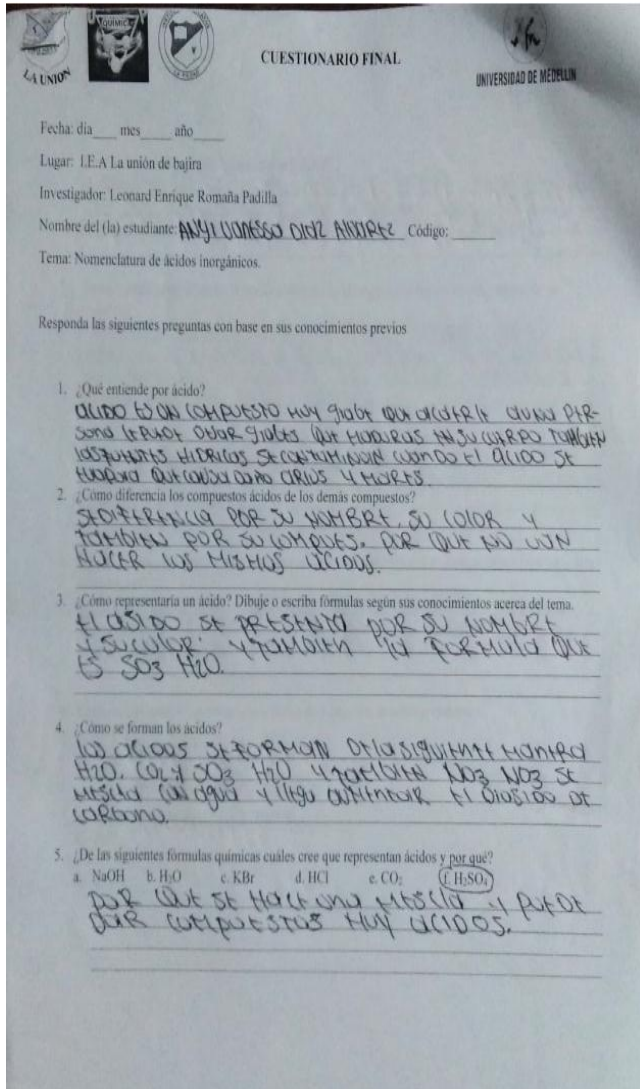 QUÍMICA
LA UNION
LA UNION
CUESTIONARIO FINAL
UNIVERSIDAD DE MEDELLIN
Fecha: dia____ mes_____ año_____
Lugar: I.E.A La unión de bajira
Investigador: Leonard Enrique Romaña Padilla
Nombre del (la) estudiante: Código:______
Tema: Nomenclatura de ácidos inorgánicos.
Responda las siguientes preguntas con base en sus conocimientos previos
1. ¿Qué entiende por ácido?
acido ES UN COMPUESTO MUY grabe QUE alcUNA PER-
sona le PUDE Dejar grabes QUE EN SU CUERPO TAMBIEN
las HIDRICAS SE CONTAMINAN cuando El acido SE
QUE causa DaÑo Y MORTS
2. ¿Cómo diferencia los compuestos ácidos de los demás compuestos?
SE DIFERENCIA POR SU NOMBRE, SU COLOR Y
TAMBIEN POR SU POR QUE NO
HACER LOS MISMOS ACIDOS.
3. ¿Cómo representaría un ácido? Dibuje o escriba fórmulas según sus conocimientos acerca del tema.
El ASIDO SE PRESENTA POR SU NOMBRE
Y SU COLOR. Y TAMBIEN la FORMULA QUE
ES SO3 H2O.
4. ¿Cómo se forman los ácidos?
los acidos SE FORMAN DE la SIGUIENTE MANERA
H2O. CO2 Y SO3 H2O Y TAMBIEN NO3 NO3 SE
MESCla CON agua Y El DIOSIDO DE
CARBONO.
5. ¿De las siguientes fórmulas químicas cuáles cree que representan ácidos y por qué?
a. NaOH b. H₂O c. KBr d. HCl e. CO₂ f. H₂SO₄
POR QUE SE HACE UNA MESCla Y PUEDE
DAR COMPUESTOS MUY ACIDOS.